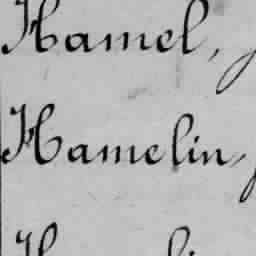 Hamel,
Hamelin,